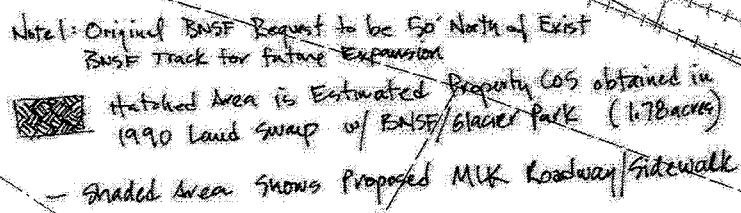 Note 1: Original BNSF Request to be 50' North of Exist
BNSF Track for future Expansion
Hatched Area is Estimated Property COS obtained in
1990 Land Swap w/ BNSF/Glacier Park (1.78 acres)
- Shaded Area Shows Proposed MLK Roadway/Sidewalk